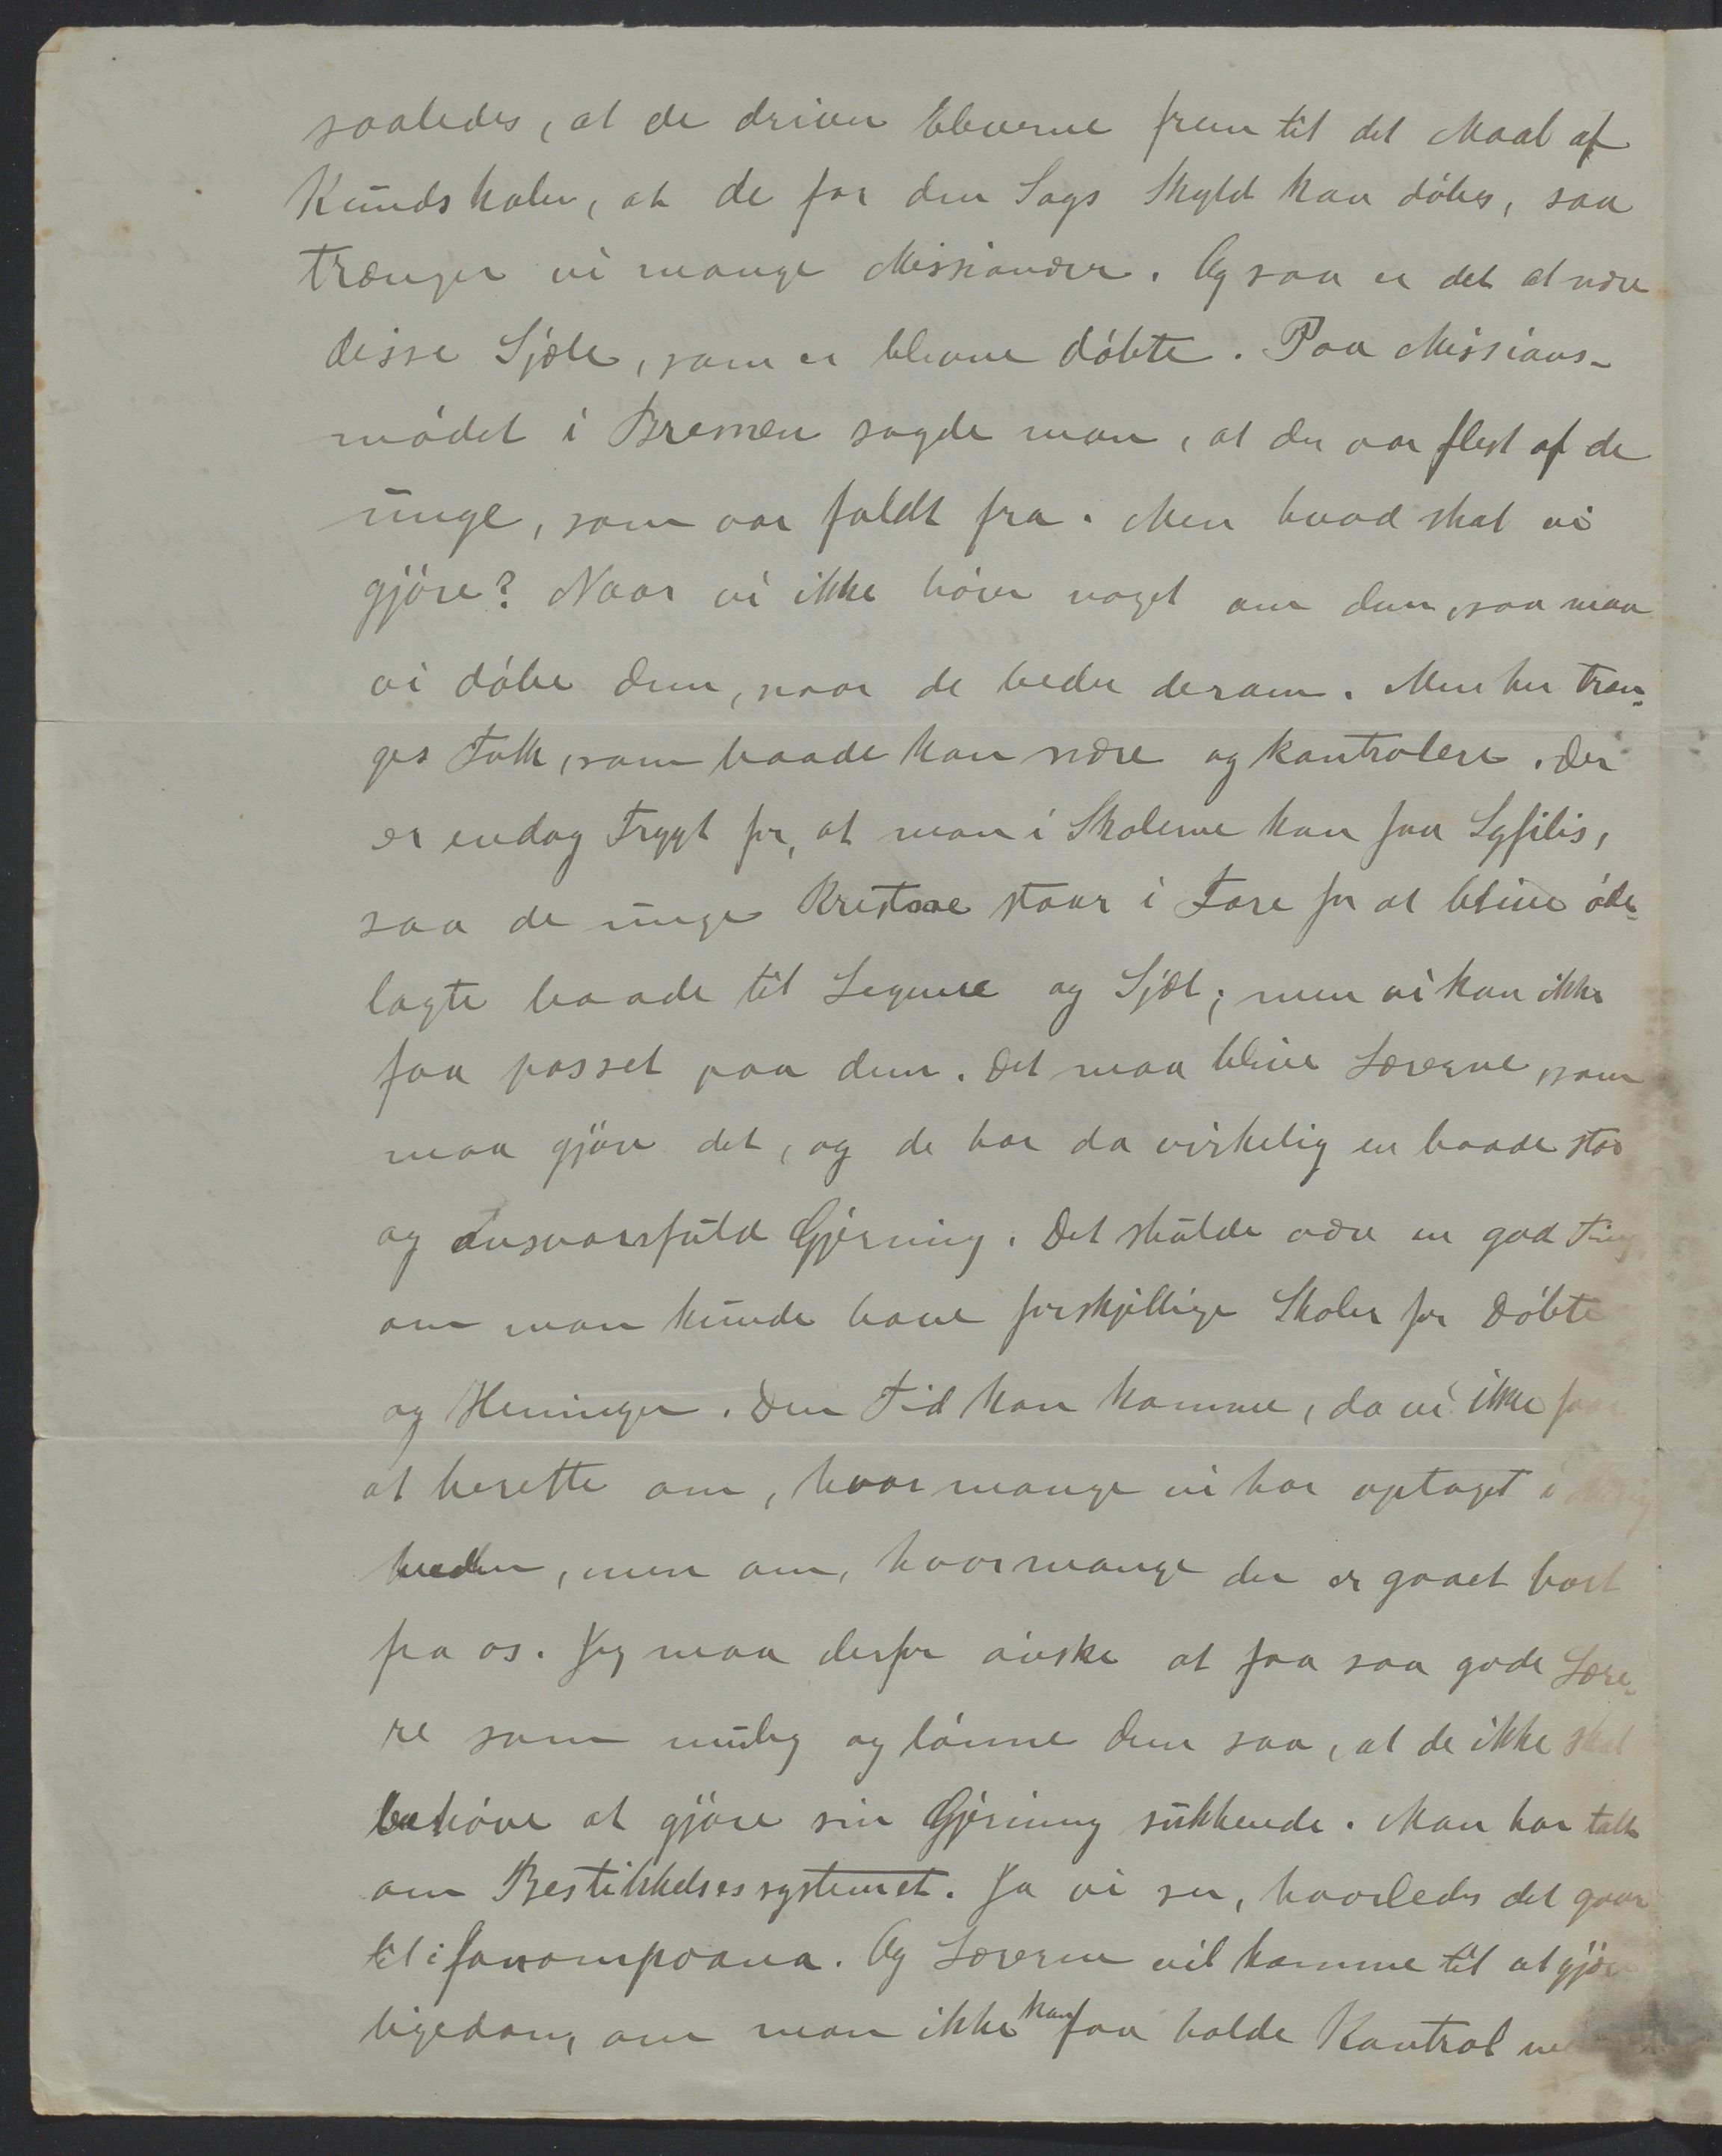 saaledes, at de driver Eleverne frem til det Maal af
Kundskaber, at de for den Sags Skyld kan döbes, saa
trænger vi mange Missionærer. Og saa er det at nære
disse Sjæle, som er blevne döbte. Paa Missions-
mödet i Bremen sagde man, at der var flest af de
unge, som var faldt fra. Men hvad skal vi
gjöre? Naar vi ikke hörer noget om dem, saa maa
vi döbe dem, naar de beder derom. Men her træn-
ges Folk, som baade kan nære og kontrolere. Der
er endog Frygt for, at man i Skolerne kan faa Syfilis,
saa de unge Kristne staar i Fare for at blive öde-
lagte baade til Legeme og Sjæl; men vi kan ikke
faa passet paa dem. Det maa blive Lærerne, som
maa gjöre det, og de har da virkelig en baade stor
og ansvarsfuld Gjerning. Det skulde være en god Ting
om man kunde have forskjellige Skoler for Döbte
og Hedninger. Den Tid kan komme, da vi ikke faar
at berette om, hvor mange vi har optaget i Menig
heden, men om, hvor mange der er gaaet bort
fra os. Jeg maa derfor önske at faa saa gode Lære-
re som mulig og lönne dem saa, at de ikke skal
behöve at gjöre sin Gjerning sukkende. Man har talt
om Bestikkelsessystemet. Ja vi ser, hvorledes det gaar
til i fanompoana. Og Lærerne vil komme til at gjöre
ligedan, om man ikke kan faa holde Kontrol